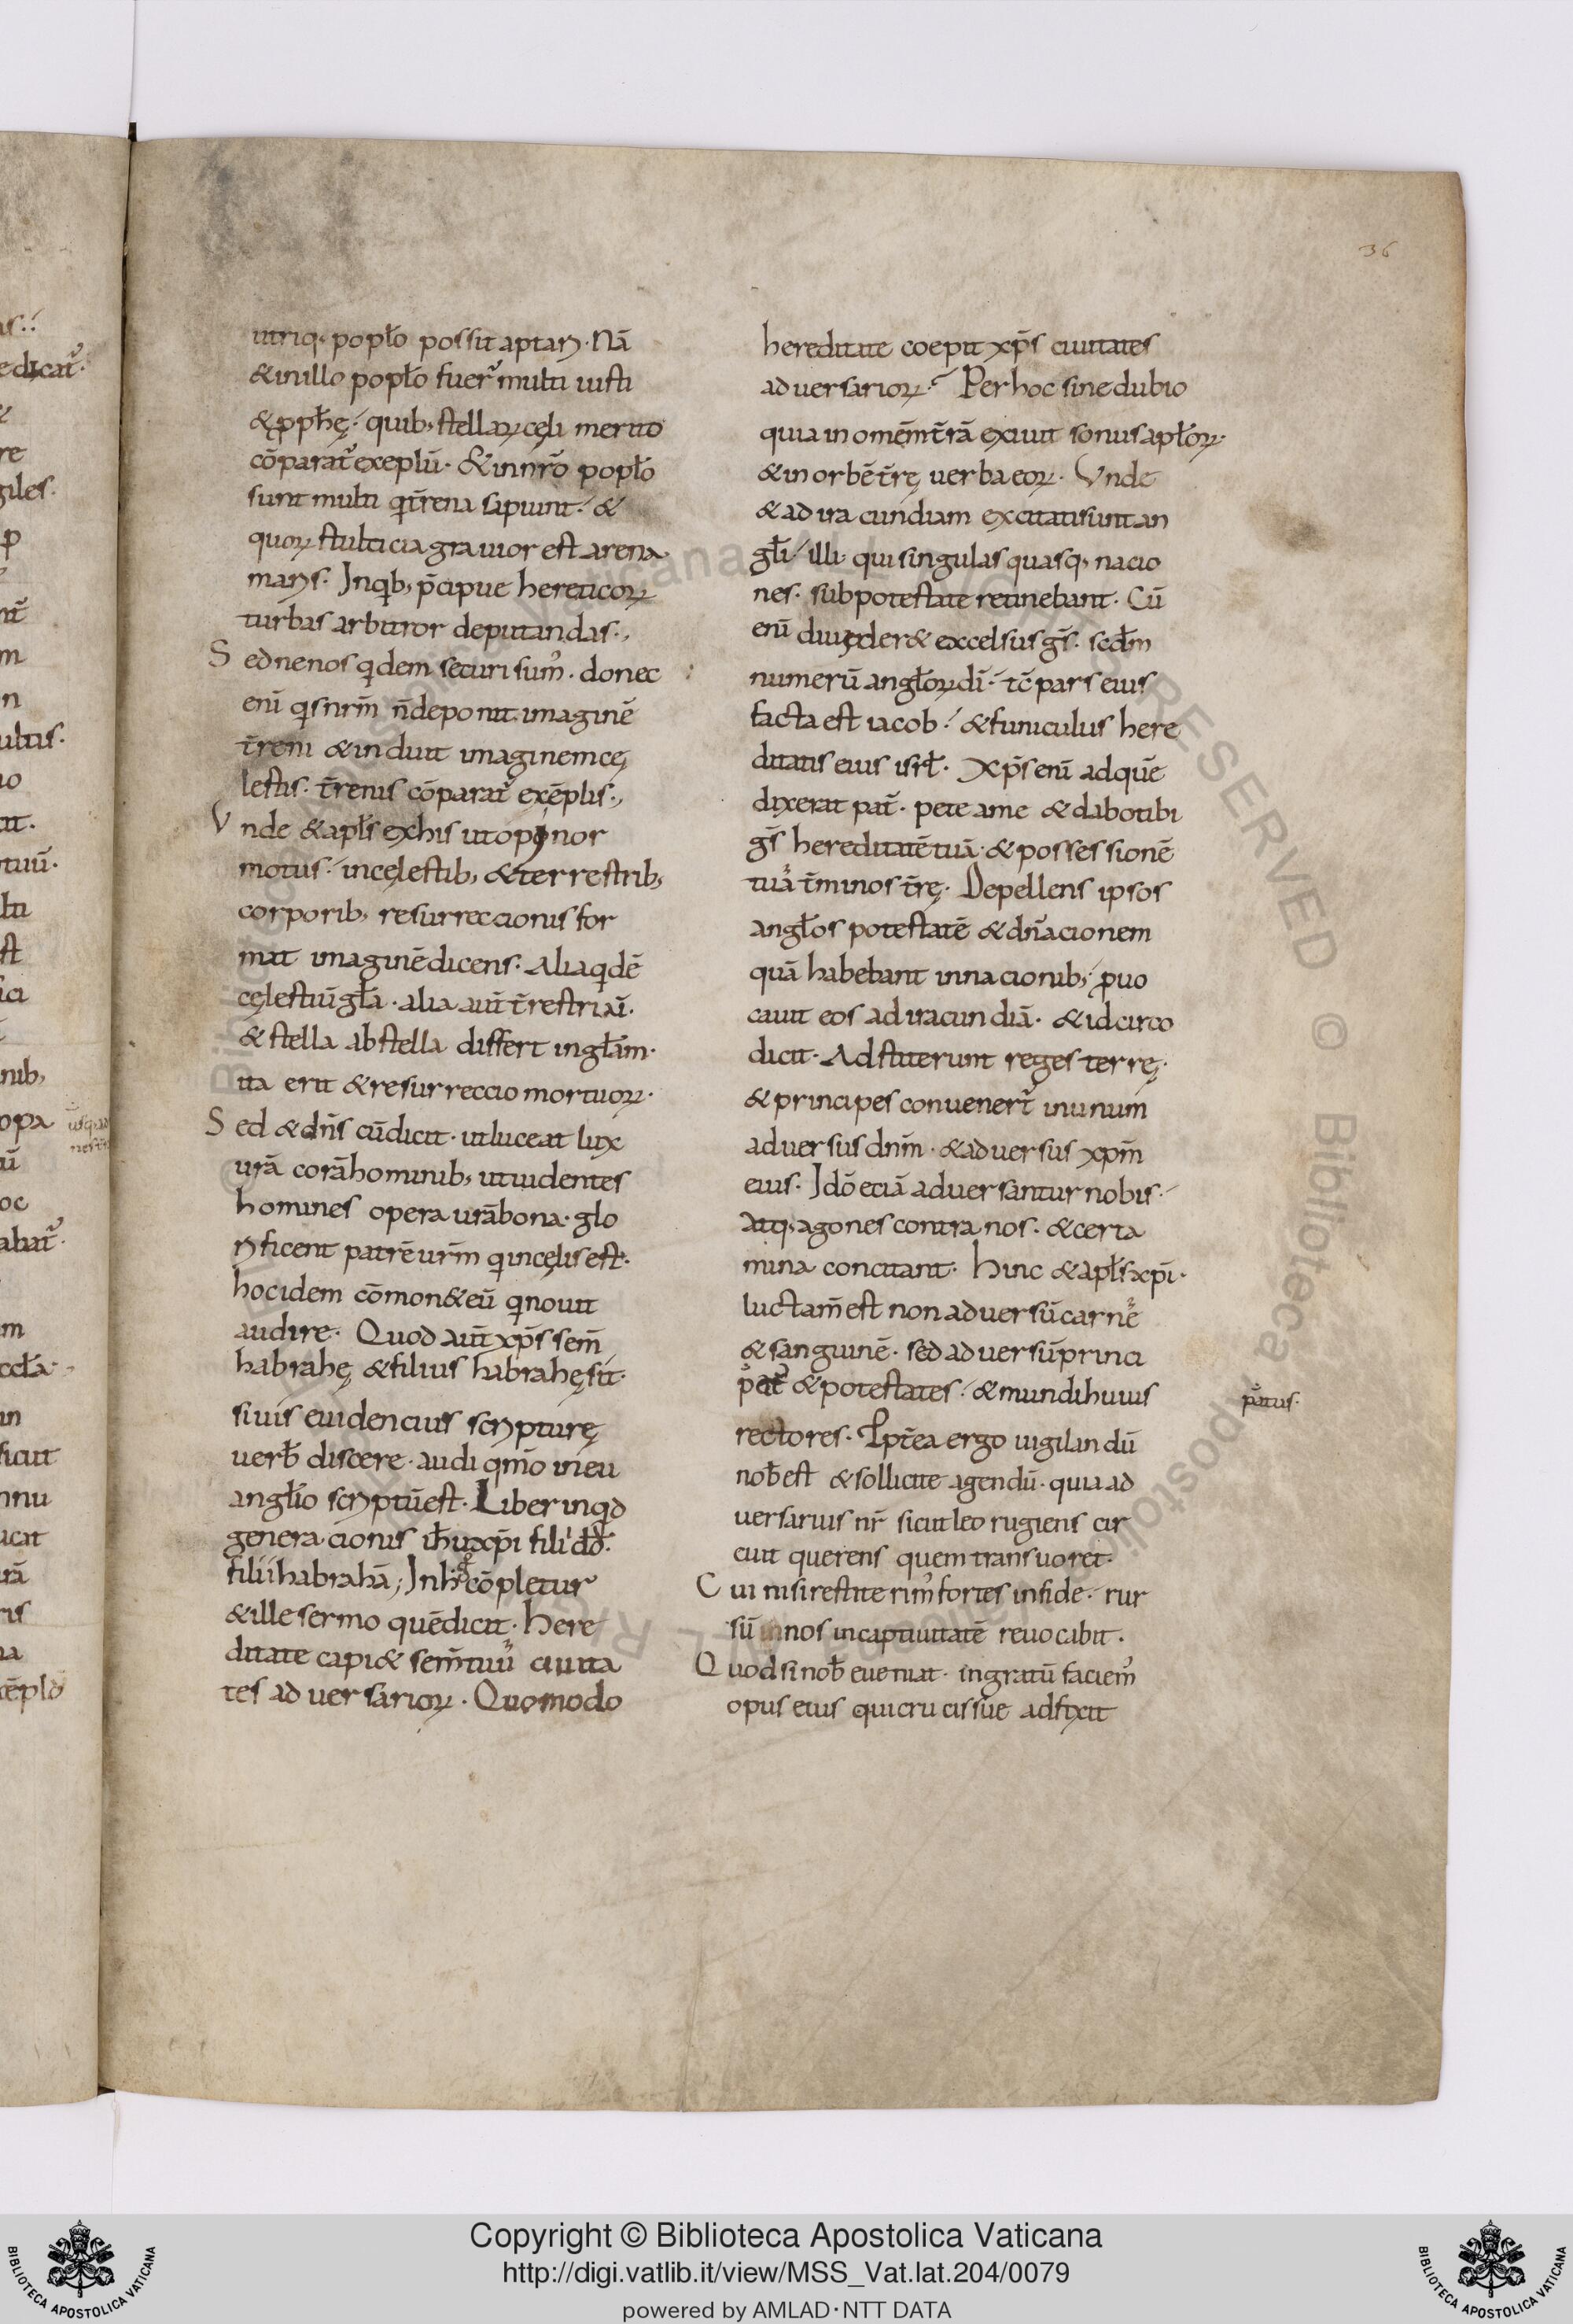 36
utriq· popło possit aptari· Nā
&inillo popło fuer̃ multi iusti
& ꝓph̄ę· quib; stellaꝝ cęli merito
cōparat̃ exeplū· & in nr̄o popło
sunt multi q̄ t̄rena sapiunt· &
quoꝝ stulticia gravior est arena
maris· Inqib; p̄cipue hereticoꝝ
turbas arbitror deputandas·,
Sed ne nos q̄dem securi sum᾽· donec
eni̅ q̄s nr̄m n̄ deponit imaginē
t̄reni & induit imaginem cę
lestis· t̄renis cōparat̃ exēplis·,
Vnde & apłs ex his ut opinor
motus· in cęlestib; & terrestrib;
corporib; resurreccionis for
mat imaginē dicens· Alia q̄dē
cęlestiū gła· alia aut̄ t̄restria·
& stella ab stella differt in głam·
ita erit & resurreccio mortuoꝝ·
Sed & dn̄s cū dicit· ut luceat lux
ur̄a corā hominib; ut uidentes
homines opera ur̄a bona· glo
rificent patrē ur̄m q̄ in cęlis est·
hoc idem cōmon& eū q̄ nouit
audire· Quod aut̄ xp̄s sem̄
habrahę & filius habrahę sit·
si uis euidencius scripturę
uerƀ discere· audi qm̄o in eu
angłio scriptū est· Liber inqid
generacionis ih̄u xp̄i filii dd̄·
filii habrahā; In h° q° cōpletur
& ille sermo quē dicit· Here
ditate capi& sem̄ tuū ciuita
tes aduersarioꝝ· Quomodo
hereditate coepit xp̄s ciuitates
aduersarioꝝ· Per hoc sine dubio
quia in omēm t̄rā exiuit sonus apłoꝝ·
& in orbē t̄rę uerba eoꝝ· Vnde
& ad iracundiam excitati sunt an
głi· illi qui singulas quasq; nacio
nes· sub potestate retinebant· Cū
eni̅ diuider& excelsus ḡs· scd̄m
numerū angłoꝝ dī· tc̄ pars eius
facta est iacob· & funiculus here
ditatis eius isrł· Xp̄s eni̅ ad quē
dixerat pat̄· pete a me & dabo tibi
ḡs hereditatē tuā· & possessionē
tuā t̄minos t̄rę· Depellens ipsos
angłos potestatē & dn̄acionem
quā habebant in nacionib; ꝓuo
cauit eos ad iracundiā· & idcirco
dicit· Adstiterunt reges terrę·
& principes conuener̃ in unum
aduersus dn̄m· & aduersus xp̄m
eius· Idō eciā aduersantur nobis·
atq; agones contra nos· & certa
mina concitant· Hinc & apłs xp̄i·
luctam̄ est non aduersū carnē
& sanguinē· sed aduersū princi
pat̃ & potestates· & mundi huius
patus·
rectores· Ppt̄ea ergo uigilandū
noƀ est & sollicite agendū· quia ad
uersarius nr̄ sicut leo rugiens cir
cuit querens quem transuoret·
Cui nisi restiterim᾽ fortes in fide· rur
sū nos in captiuitatē reuocabit·
Quod si noƀ eueniat· ingratū faciem᾽
opus eius qui cruci suę adfixit
Copyright © Biblioteca Apostolica Vaticana
http://digi.vatlib.it/view/MSS_Vat.lat.204/0079
powered by AMLAD·NTT DATA
BIBLIOTECA APOSTOLICA VATICANA
BIBLIOTECA APOSTOLICA VATICANA